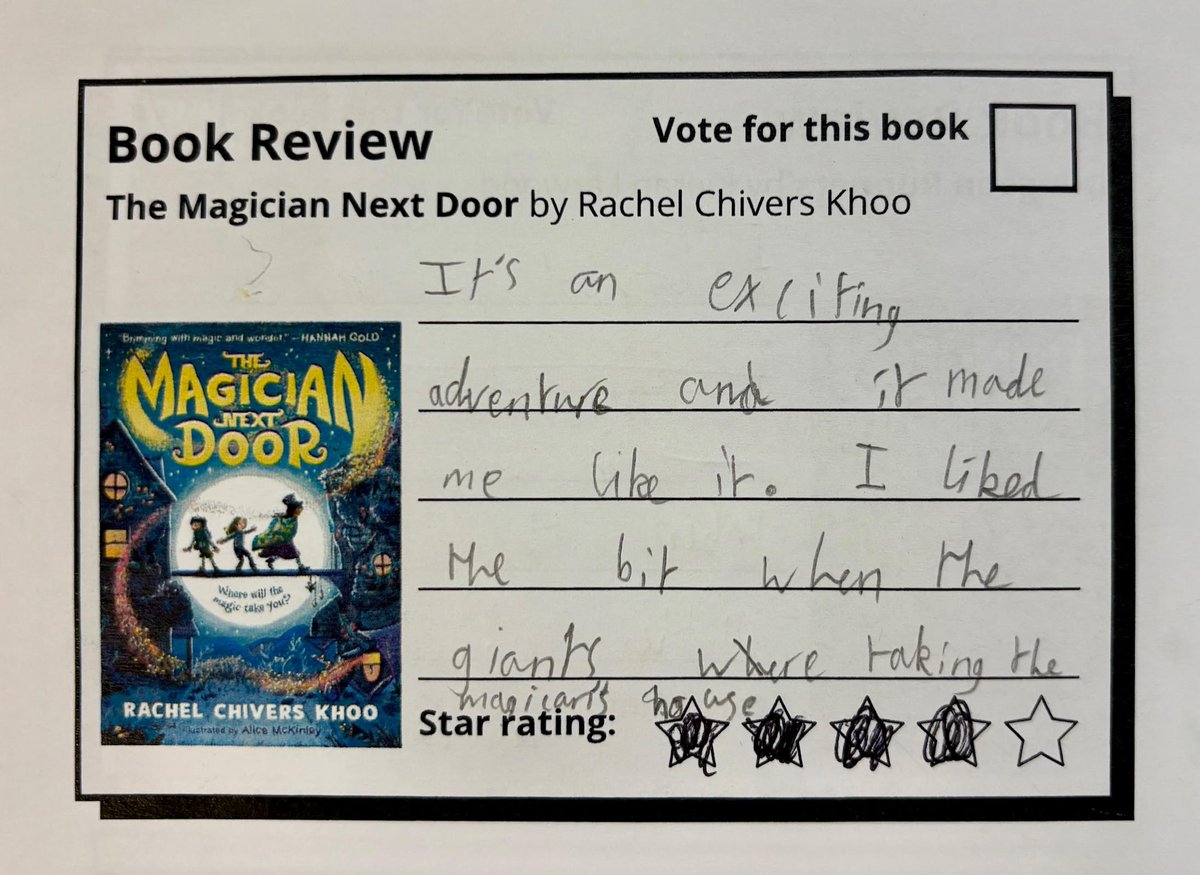 Book Review
Vote for this book
The Magician Next Door by Rachel Chivers Khoo
?
It's an exciting
adventure and it made
me like it. I liked
the bit when the
giants where taking the
magican's house
"Brimming with magic and wonder." – HANNAH GOLD
THE
MAGICIAN
NEXT
DOOR
Where will the
magic take you?
RACHEL CHIVERS KHOO
Illustrated by Alice McKinley
Star rating: